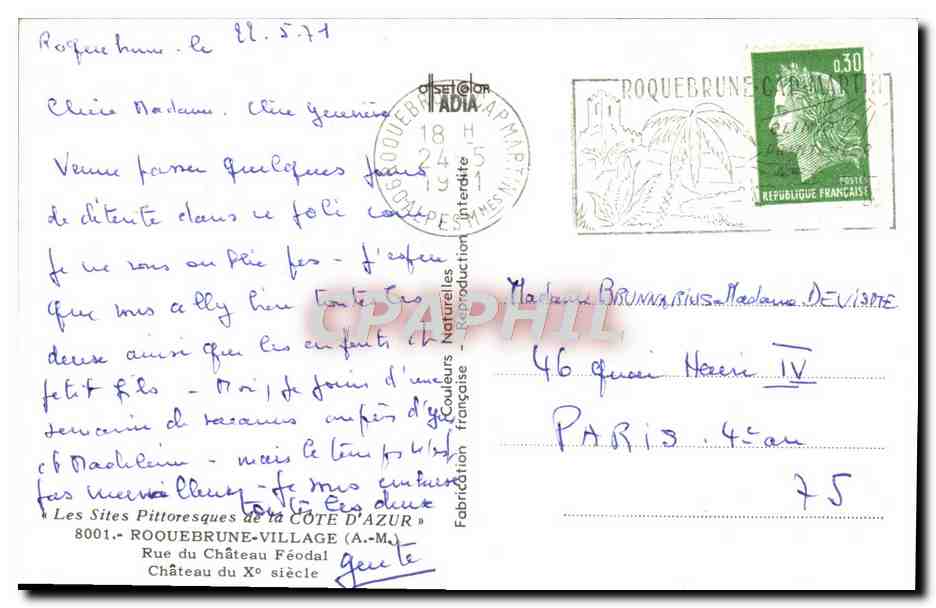 Roquebrune . le 22.5.71
Chère Madame. Chère Geneviève
Venue passer quelques jours
de détente dans ce joli coin,
je ne vous oublie pas - J'espère
que vous allez bien toutes les
deux ainsi que les enfants et
petit fils - Moi, je jouis d'une
semaine de vacances auprès d'
et Madeleine - mais le temps n'est
pas merveilleux - Je vous embrasse
toutes les deux
« Les Sites Pittoresques de la COTE D'AZUR »
8001.- ROQUEBRUNE-VILLAGE (A.-M.)
Rue du Château Féodal
Château du Xº siècle
OFFSET COLOR
ADIA
Couleurs Naturelles
Fabrication française - Reproduction interdite
ROQUEBRUNE CAP MARTIN
18 H
24-5
1971
06 ALPES MMES
ROQUEBRUNE-CAP-MARTIN
0,30
POSTES
REPUBLIQUE FRANÇAISE
CPAPHIL
Madame BRUNNARIUS - Madame DEVISME
46 quai Henri IV
PARIS . 4e arr
75